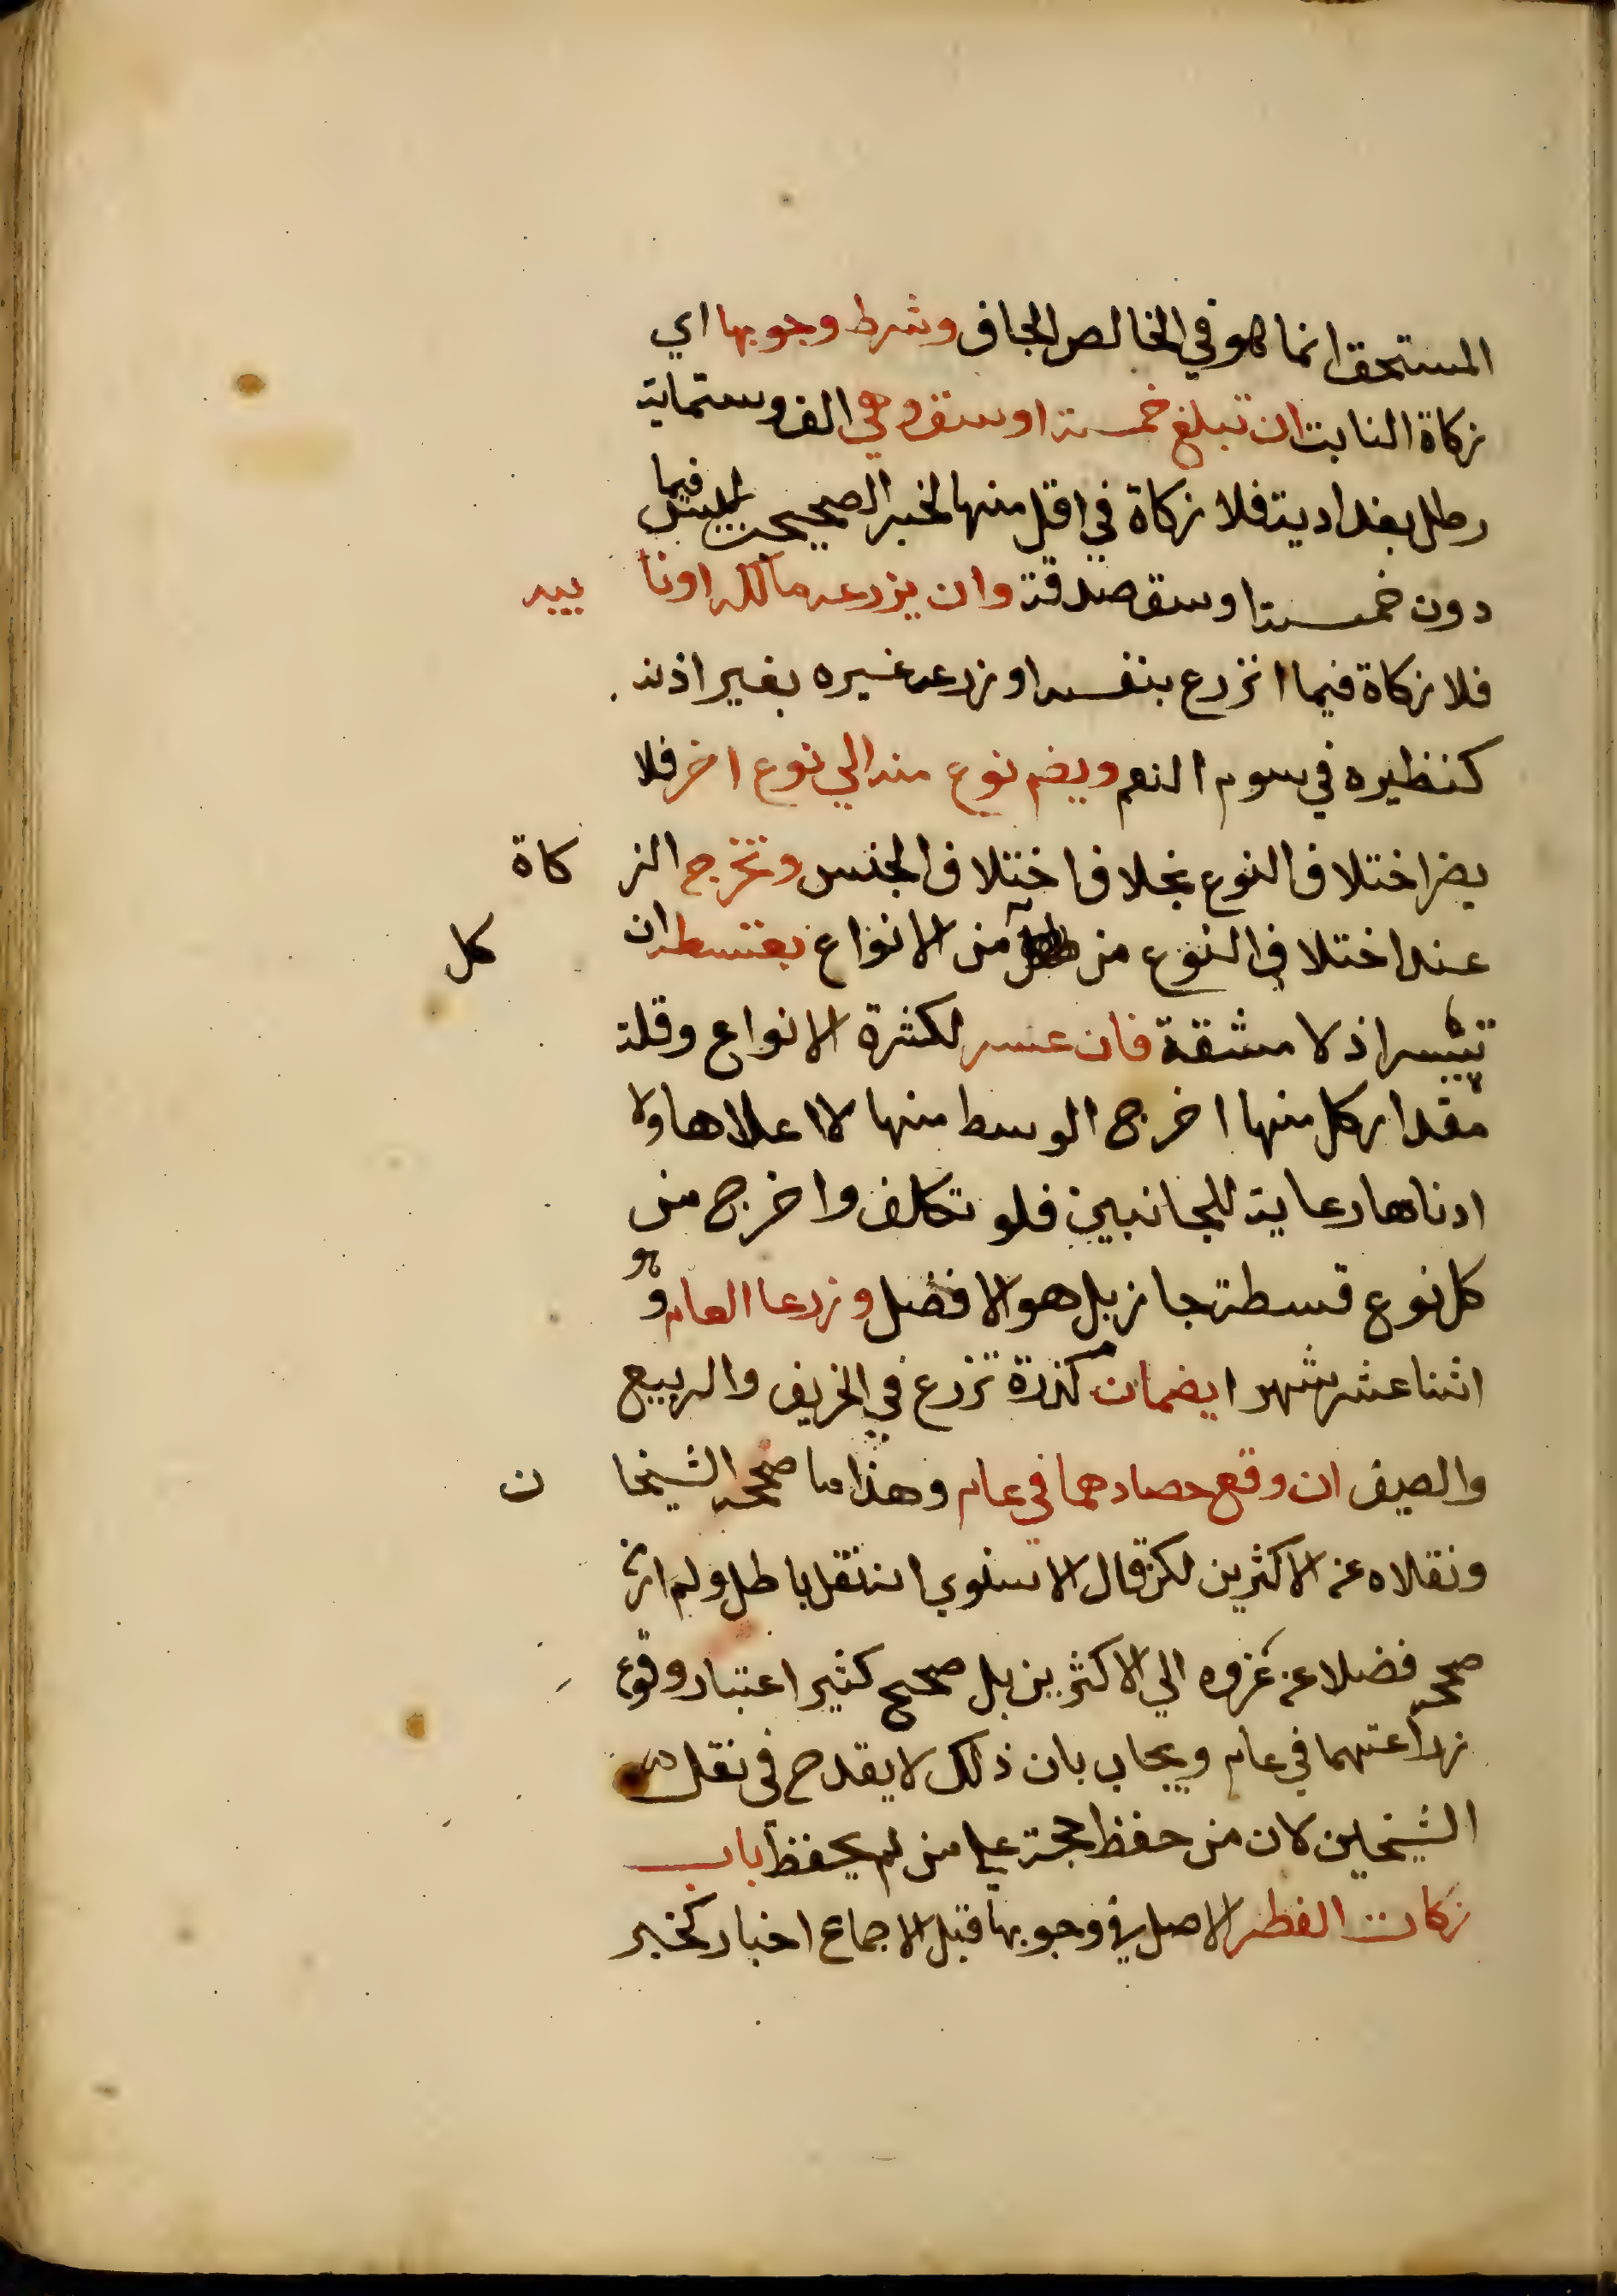 المستحق انما هو في الخالص الجاف وشرط وجوبها اي
زكاة النابت ان تبلغ خمسة اوسق وهي الف وستماية
رطل بغدادية فلا زكاة في اقل منها لخبر الصحيحين ليس فيما
دون خمسة اوسق صدقة وان يزرعه مالكه او نا يبه
فلا زكاة فيما انزرع بنفسه او زرعه غيره بغير اذنه
كنظيره في سوم النعم ويضم نوع منه الي نوع اخر فلا
يضر اختلاف النوع بخلاف اختلاف الجنس وتخرج الز كاة
عند اختلاف النوع من كل من الانواع بقسطه ان
تيسر اذ لا مشقة فان عسر لكثرة الانواع وقلة
مقدار كل منها اخرج الوسط منها لا اعلاها ولا
ادناها رعاية للجانبين فلو تكلف واخرج من
كل نوع قسطه جاز بل هو الافضل وزرعا العام وهو
اثنا عشر شهرا يضمان كذرة تزرع في الخريف والربيع
والصيف ان وقع حصادهما في عام وهذا ما صححه الشيخا ن
ونقلاه عن الاكثرين لكن قال الاسنوي انه نقل باطل ولم ار من
صححه فضلا عن عزوه الي الاكثرين بل صحح كثير اعتبار وقوع
زراعتهما في عام ويجاب بان ذلك لا يقدح في نقل
الشيخين لان من حفظ حجة علي من لم يحفظ باب
زكات الفطر الاصل في وجوبها قبل الاجماع اخبار كخبر